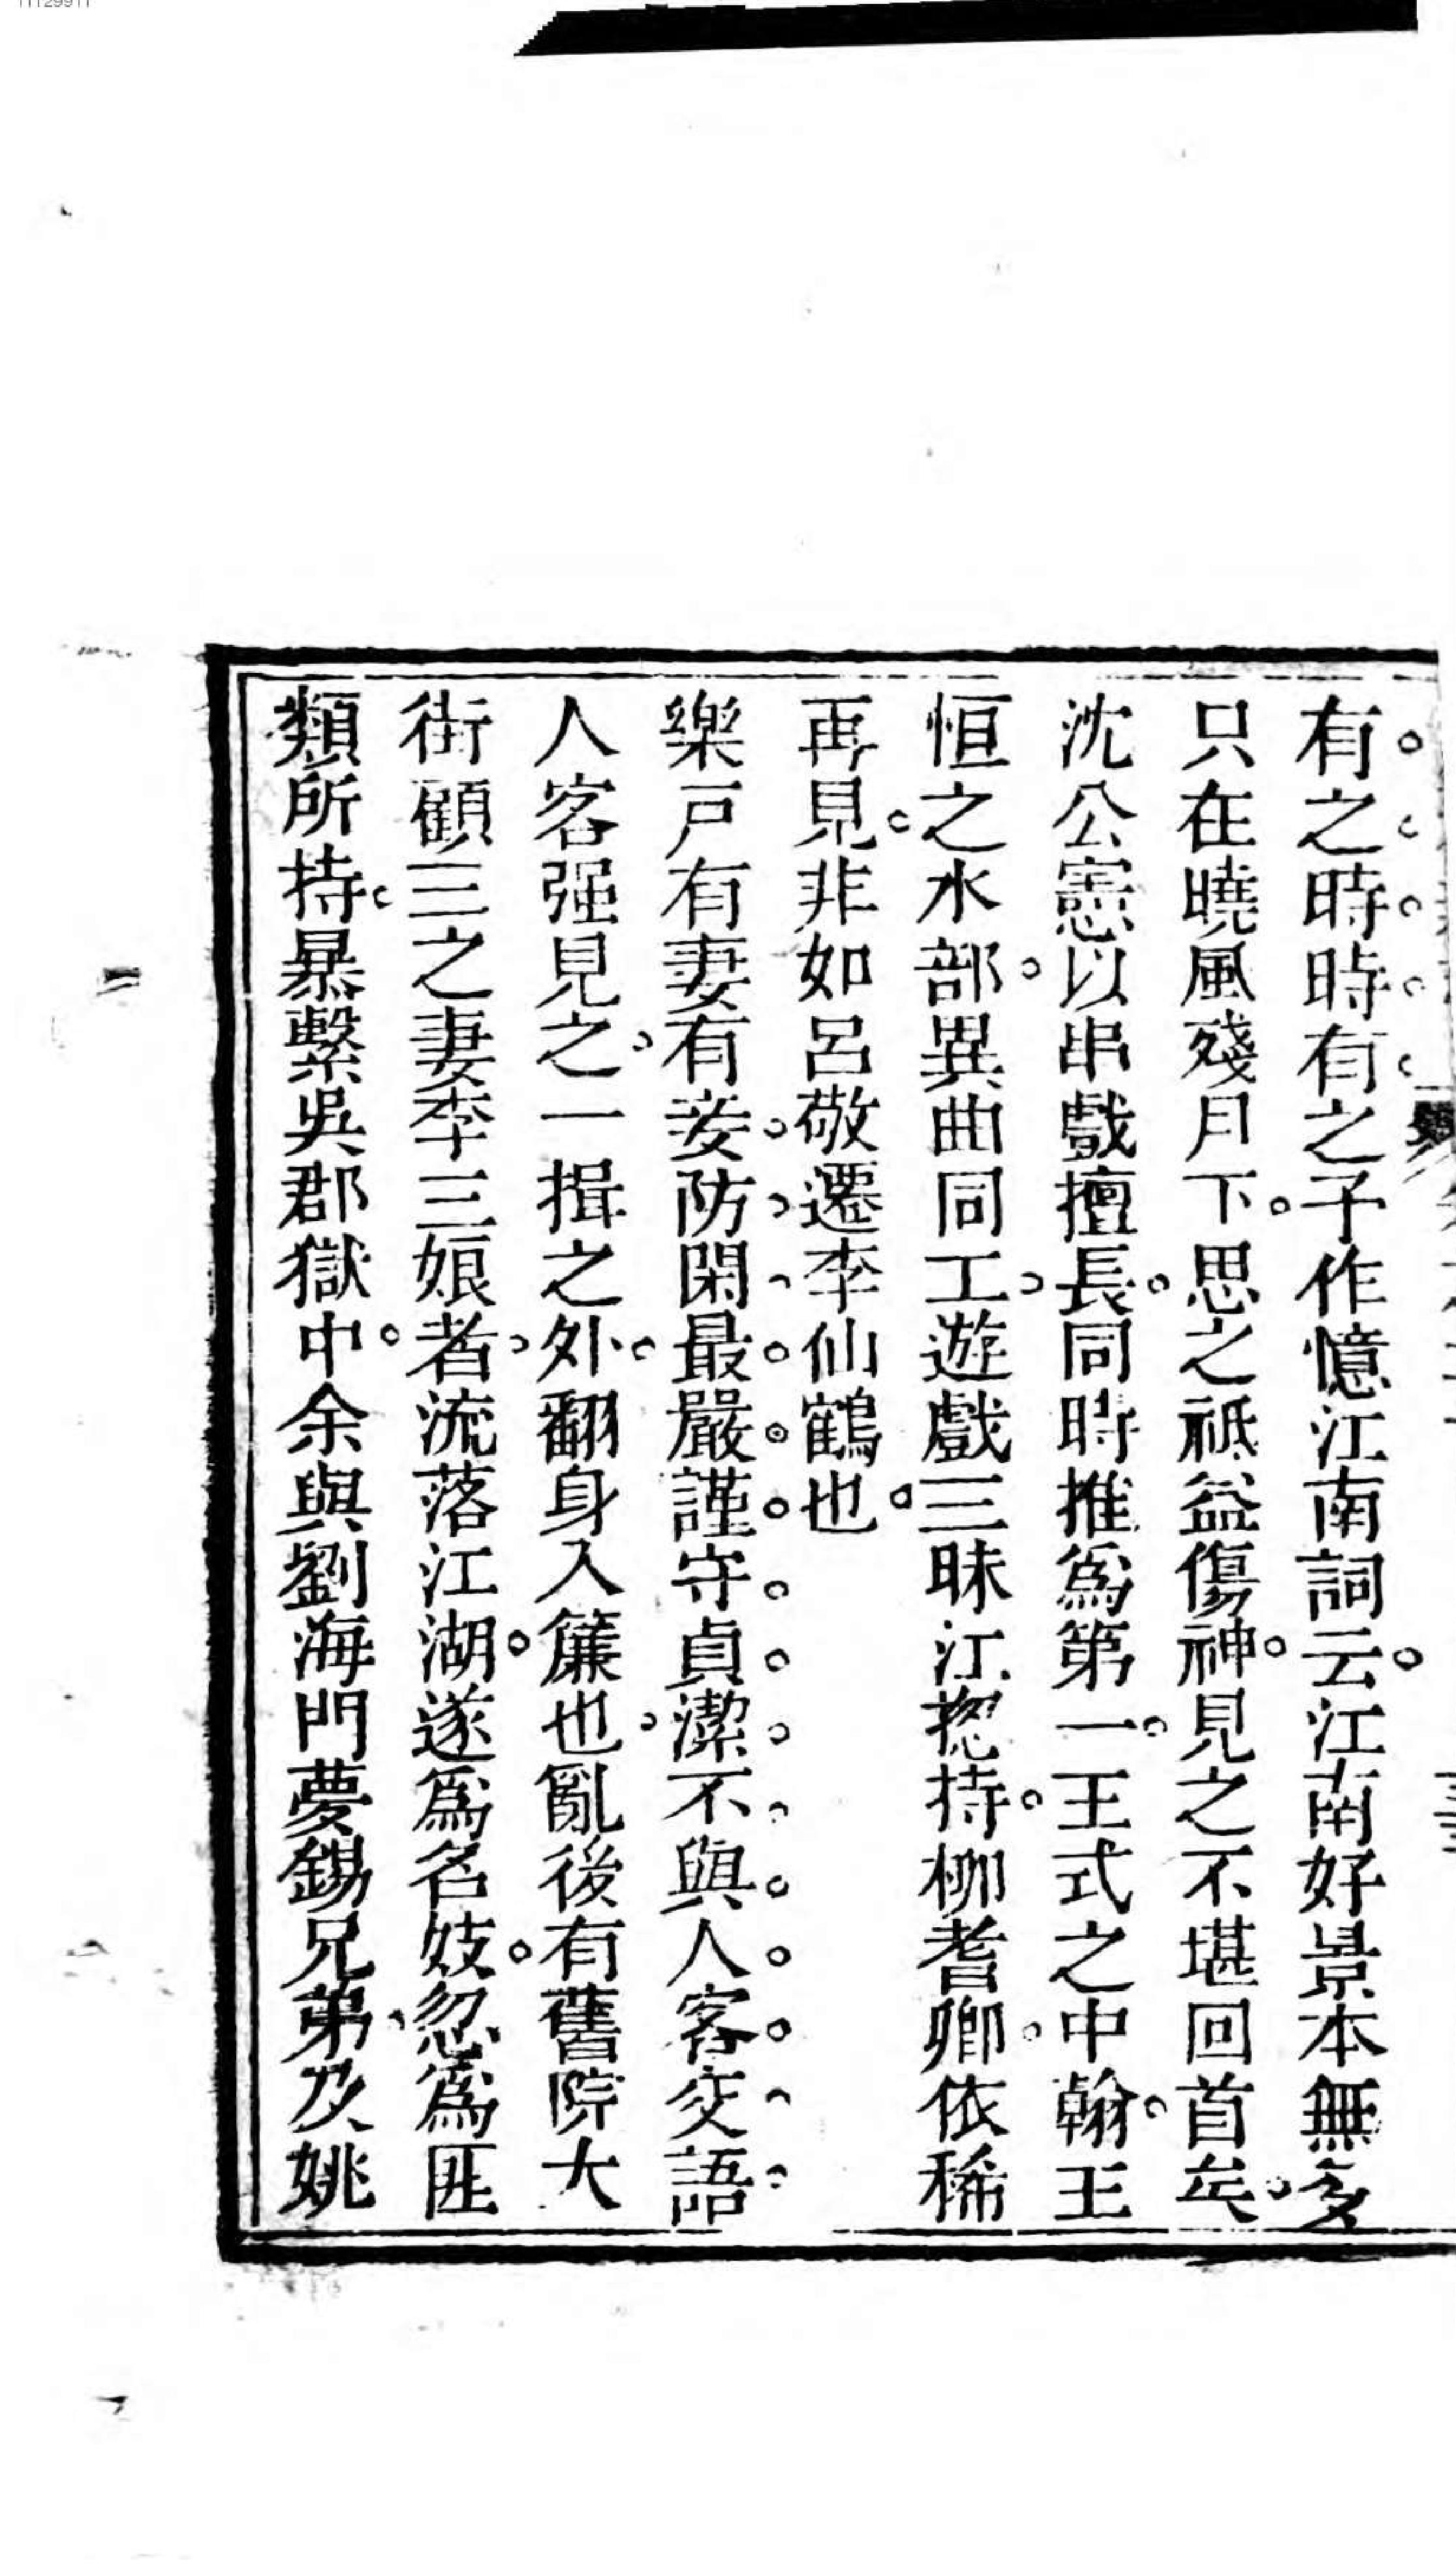 11129911
有之時時有之予作憶江南詞云江南好景本無多
只在曉風殘月下思之祗益傷神見之不堪回首矣
沈公憲以串戲擅長同時推爲第一王式之中翰王
恒之水部異曲同工遊戲三昧江揔持柳耆卿依稀
再見非如呂敬遷李仙鶴也
樂戸有妻有妾防閑最嚴謹守貞潔不與人客交語
人客强見之一揖之外翻身入簾也亂後有舊院大
街顧三之妻李三娘者流落江湖遂爲名妓忽爲匪
類所持暴繫吳郡獄中余與劉海門夢錫兄弟及姚